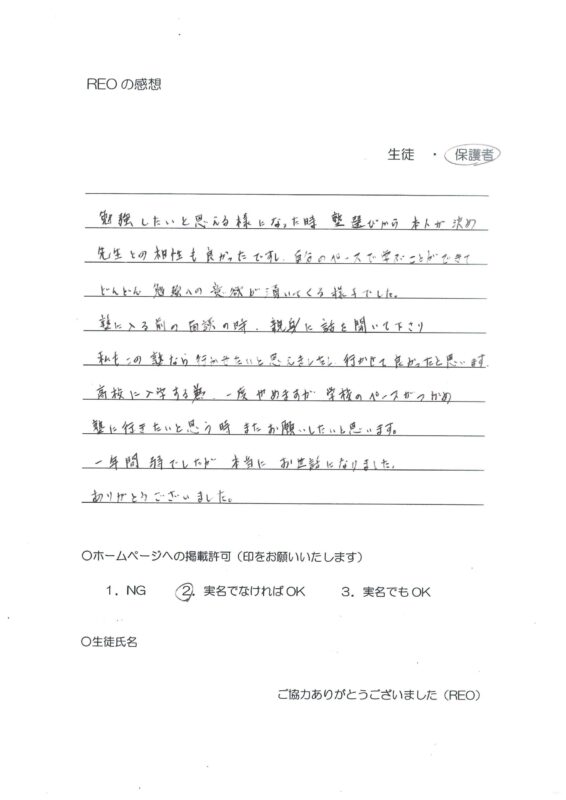 REOの感想
生徒 ・ 保護者
勉強したいと思える様になった時 塾選びから 本人が決め
先生との相性も良かったですし、自分のペースで学ぶことができて
どんどん 勉強への意欲が湧いてくる様子でした。
塾に入る前の面談の時、親身に話を聞いて下さり
私もこの塾なら行かせたいと思えましたし 行かせて良かったと思います。
高校に入学する為、一度やめますが 学校のペースがつかめ
塾に行きたいと思う時 またお願いしたいと思います。
一年間 弱でしたが 本当に お世話になりました。
ありがとうございました。
○ホームページへの掲載許可（印をお願いいたします）
1．NG 2．実名でなければOK 3．実名でもOK
○生徒氏名
ご協力ありがとうございました（REO）